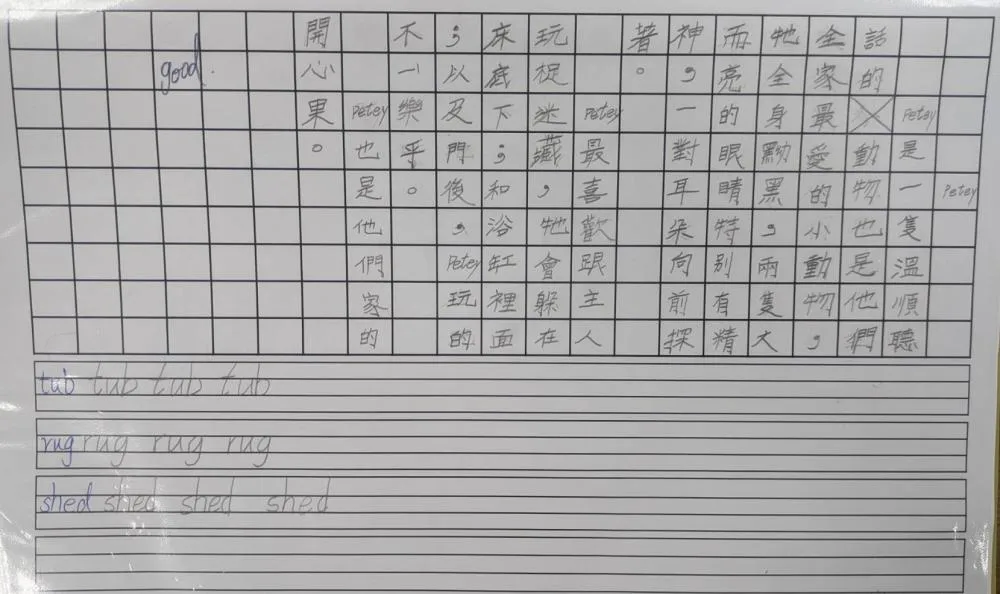 Petey
Petey是一隻溫順聽
話的動物也是他們
全家最愛的小動物，
牠全身黝黑，兩隻大
而亮的眼睛特別有精
神，一對耳朵向前探
著。
Petey最喜歡跟主人
玩捉迷藏，牠會躲在
床底下；和浴缸裡面
；以及門後，Petey玩的
不一樂乎。
Petey也是他們家的
開心果。
good.
tub tub tub tub
rug rug rug rug
shed shed shed shed